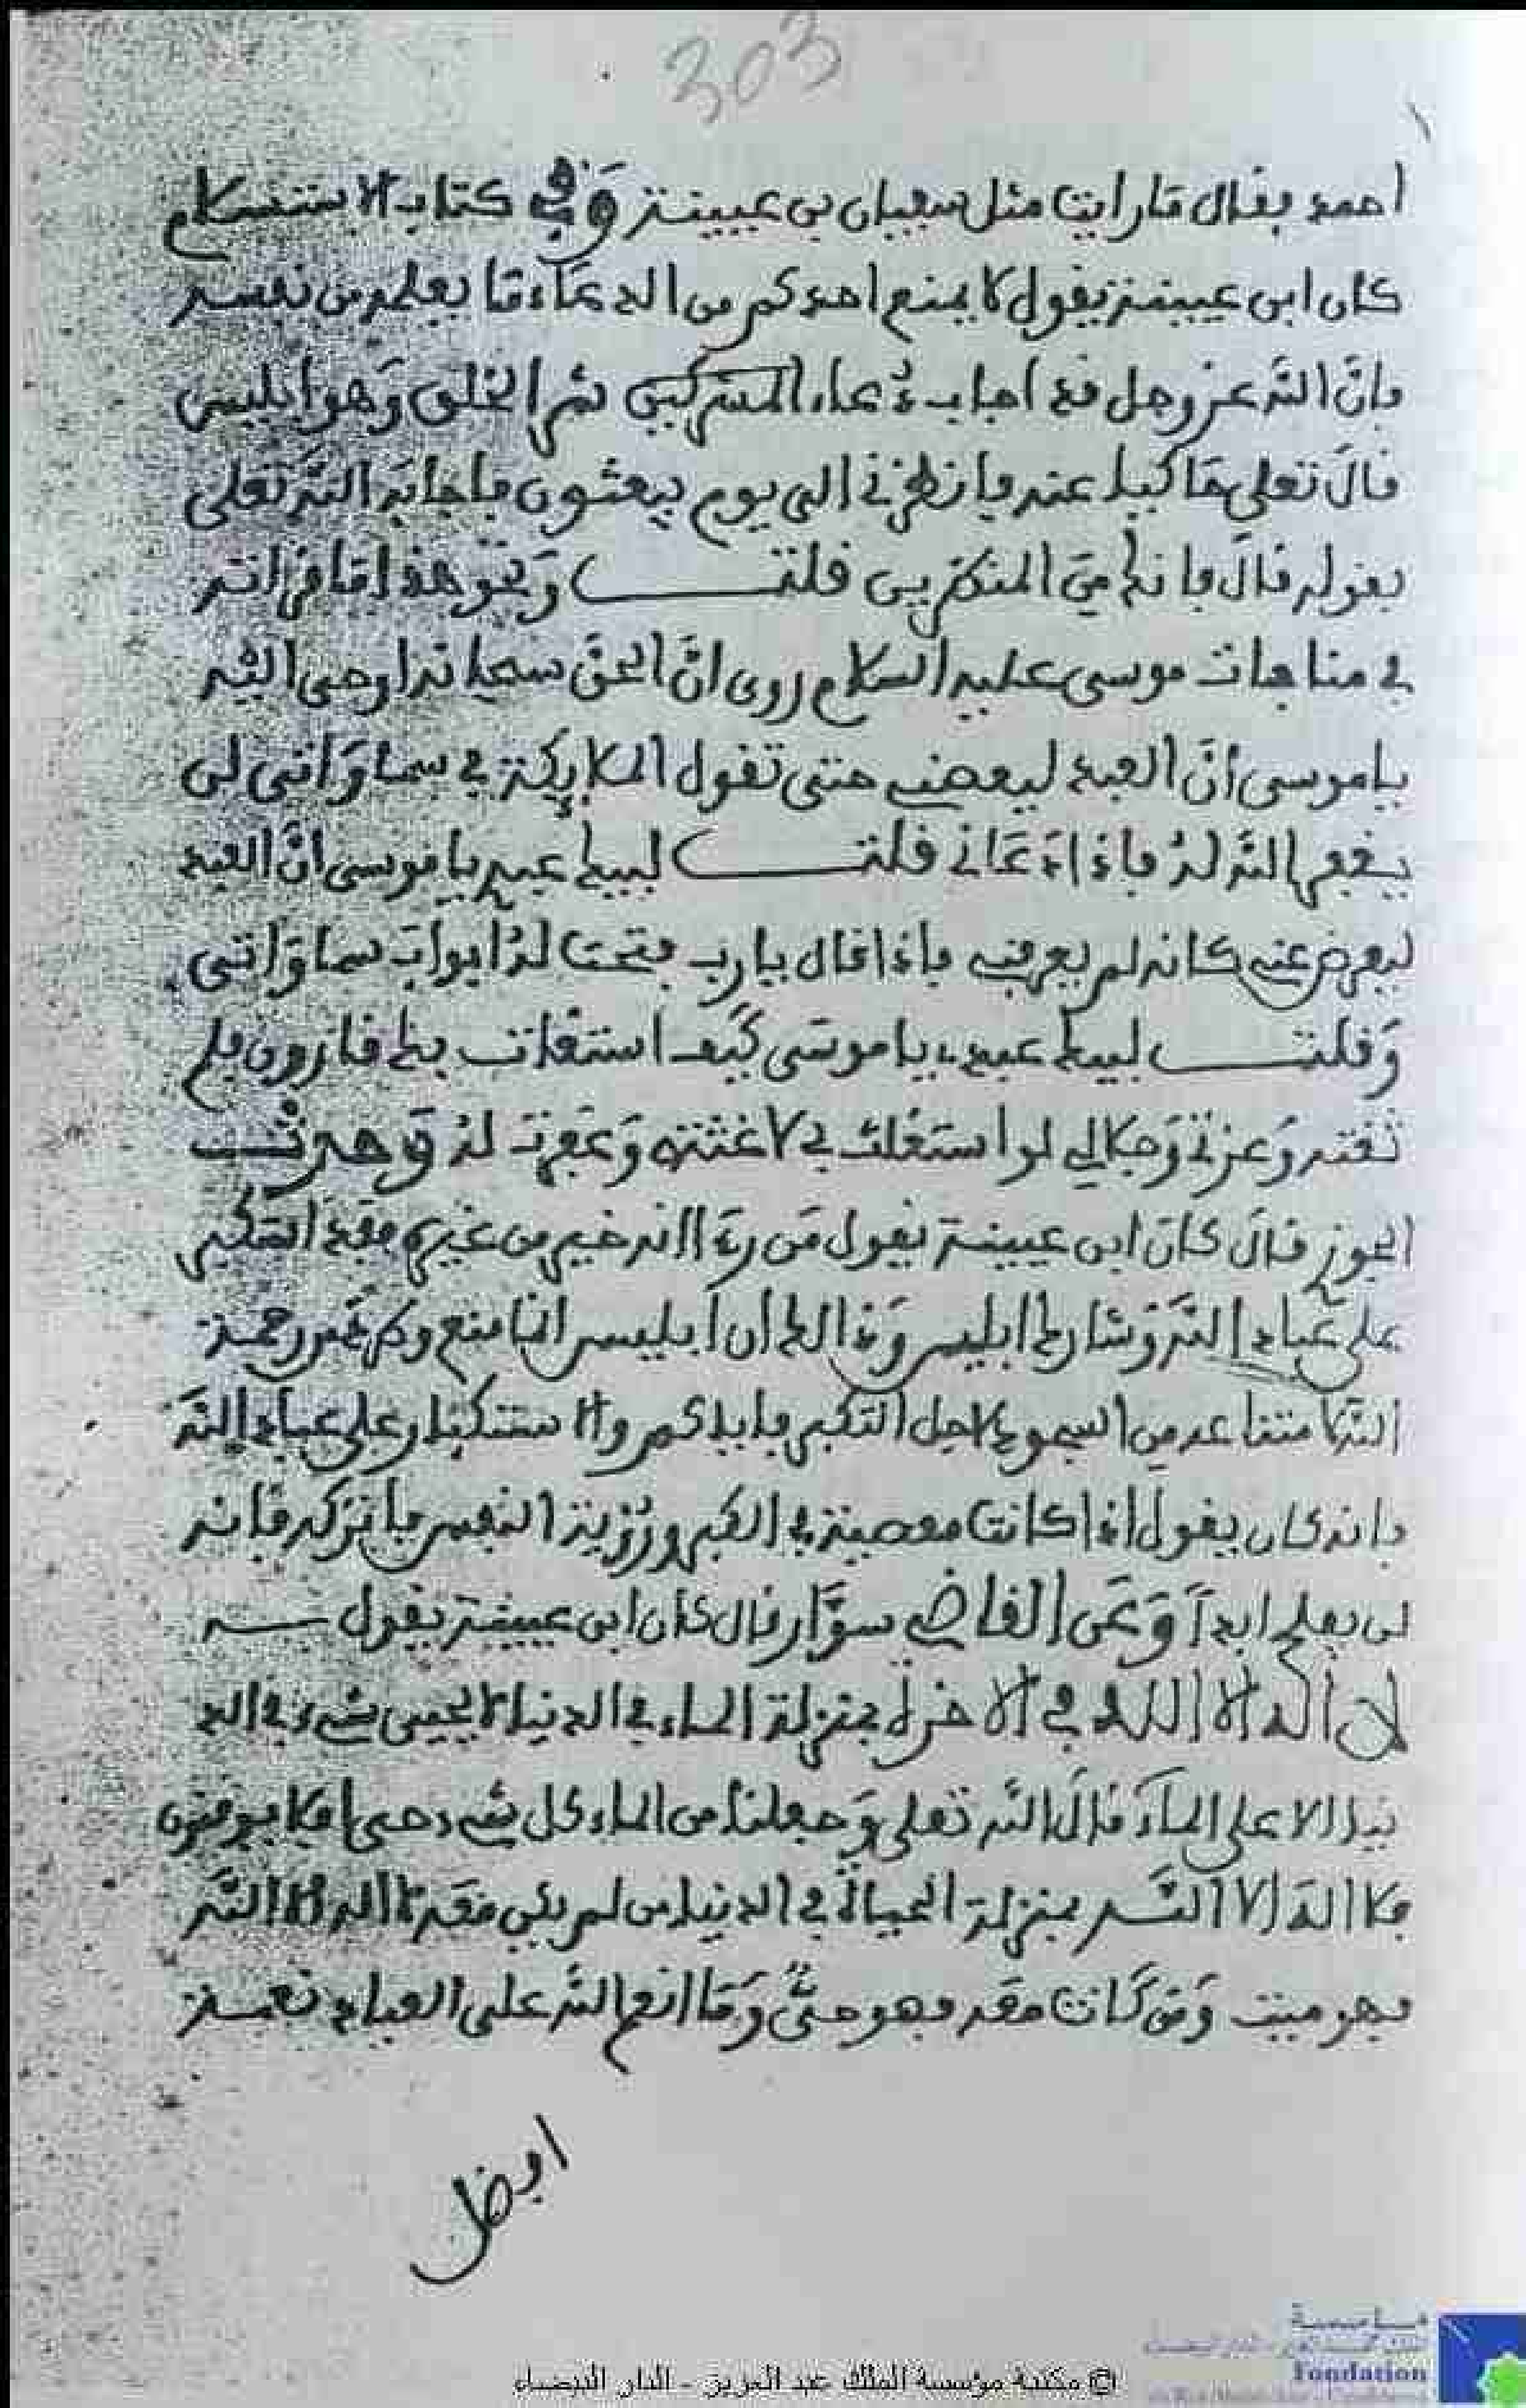 303
احمد بفال مارايت مثل سفيان بن عيينة وفي كتاب الاستسلام
كان ابن عيينة يقول لا يمنع احدكم من الدعاء ما يعلم من نفسه
فان الله عز وجل قد اجاب دعاء المشركين شر الخلق وهو ابليس
قال تعلى حاكيا عنه فانظرني الى يوم يبعثون فاجابه الله تعلى
بقوله قال فانك من المنظرين قلت ونحو هذا ما قراته
في مناجات موسى عليه السلام روى ان الحق سبحانه اوحى اليه
ياموسى ان العبد ليعصني حتى تقول الملايكة في سماواتى لن
يغفر الله له فاذا دعاني قلت لبيك عبدي ياموسى ان العبد
ليعرض عني كانه لم يعرفني فاذا قال يارب فتحت له ابواب سماواتي
وقلت لبيك عبدي ياموسى كيف استغاث بك قارون فلم
تغثه وعزتي وجلالي لو استغاث بي لاغثته وغفرت له وحدث
الجوز قال كان ابن عيينة يقول من رءا انه خير من غيره فقد استكبر
على عباد الله وشارك ابليس وذالك ان ابليس انما منع وطرد عن رحمة
الله لامتناعه من السجود لاجل التكبر فاياكم والاستكبار على عباد الله
وانه كان يقول اذا كانت معصية في الكبر ورؤية النفس فاتركه فانه
لن يفلح ابدا وعن القاضي سوار قال كان ابن عيينة يقول
لا اله الا الله في الاخرة بمنزلة الماء في الدنيا لا يحيى شيء في الد
نيا الا على الماء قال الله تعلى وجعلنا من الماء كل شيء حي افلا يومنون
فلا اله الا الله بمنزلة الحياة في الدنيا من لم يكن معه لا اله الا الله
فهو ميت ومن كانت معه فهو حي وما انعم الله على العباد نعمة
افضل
© مكتبة مؤسسة الملك عبد العزيز - الدار البيضاء
Fondation